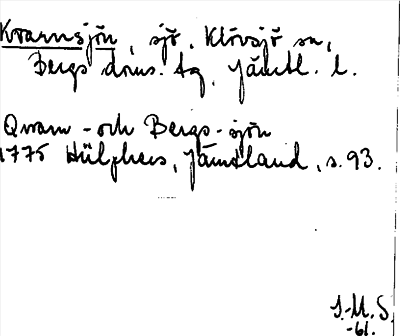 Kvarnsjön, sjö, Klövsjö sn,
Bergs doms. tg, Jämtl. l.
Qvarn- och Bergs-sjön
1775 Hülphers, Jämtland, s. 93.
S.-M. S.
-61.